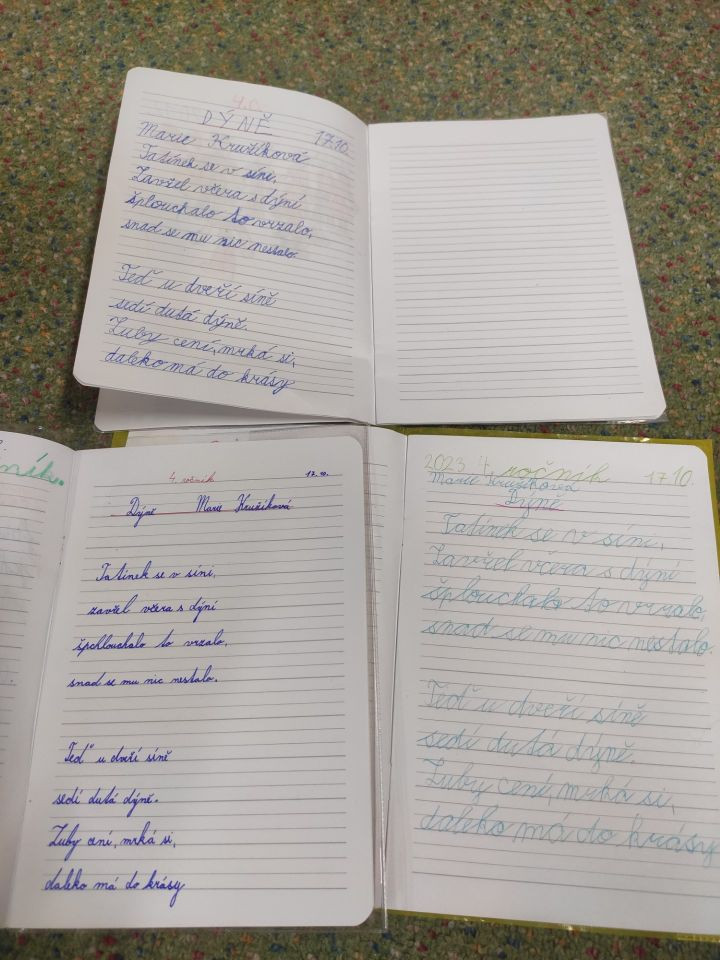 DÝNĚ
17.10.
Marie Kružíková
Tatínek se v síni,
Zavřel včera s dýní
šplouchalo to vrzalo,
snad se mu nic nestalo.
Teď u dveří síně
sedí dutá dýně.
Zuby cení, mrká si,
daleko má do krásy
4. ročník
17. 10.
Dýně Marie Kružíková
Tatínek se v síni,
zavřel včera s dýní
špchlouchalo to vrzalo,
snad se mu nic nestalo.
Teď u dveří síně
sedí dutá dýně.
Zuby cení, mrká si,
daleko má do krásy
2023 4. ročník 17 10.
Marie Kružíková
Dýně
Tatínek se v síni,
Zavřel včera s dýní
šplouchalo to vrzalo,
snad se mu nic nestalo.
Teď u dveří síně
sedí dutá dýně.
Zuby cení, mrká si,
daleko má do krásy